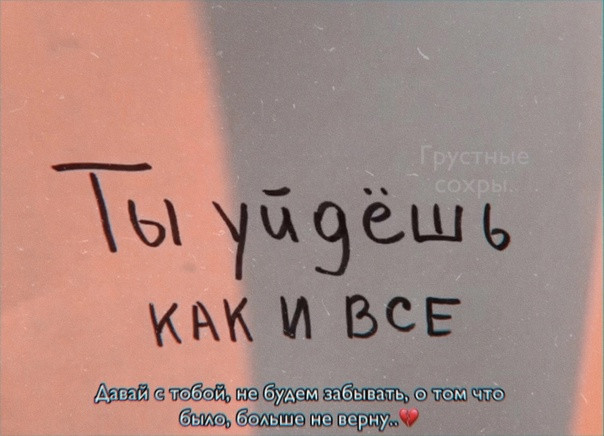 Грустные
сохры..
Ты уйдёшь
КАК И ВСЕ
Давай с тобой, не будем забывать, о том что
было, больше не верну..💔